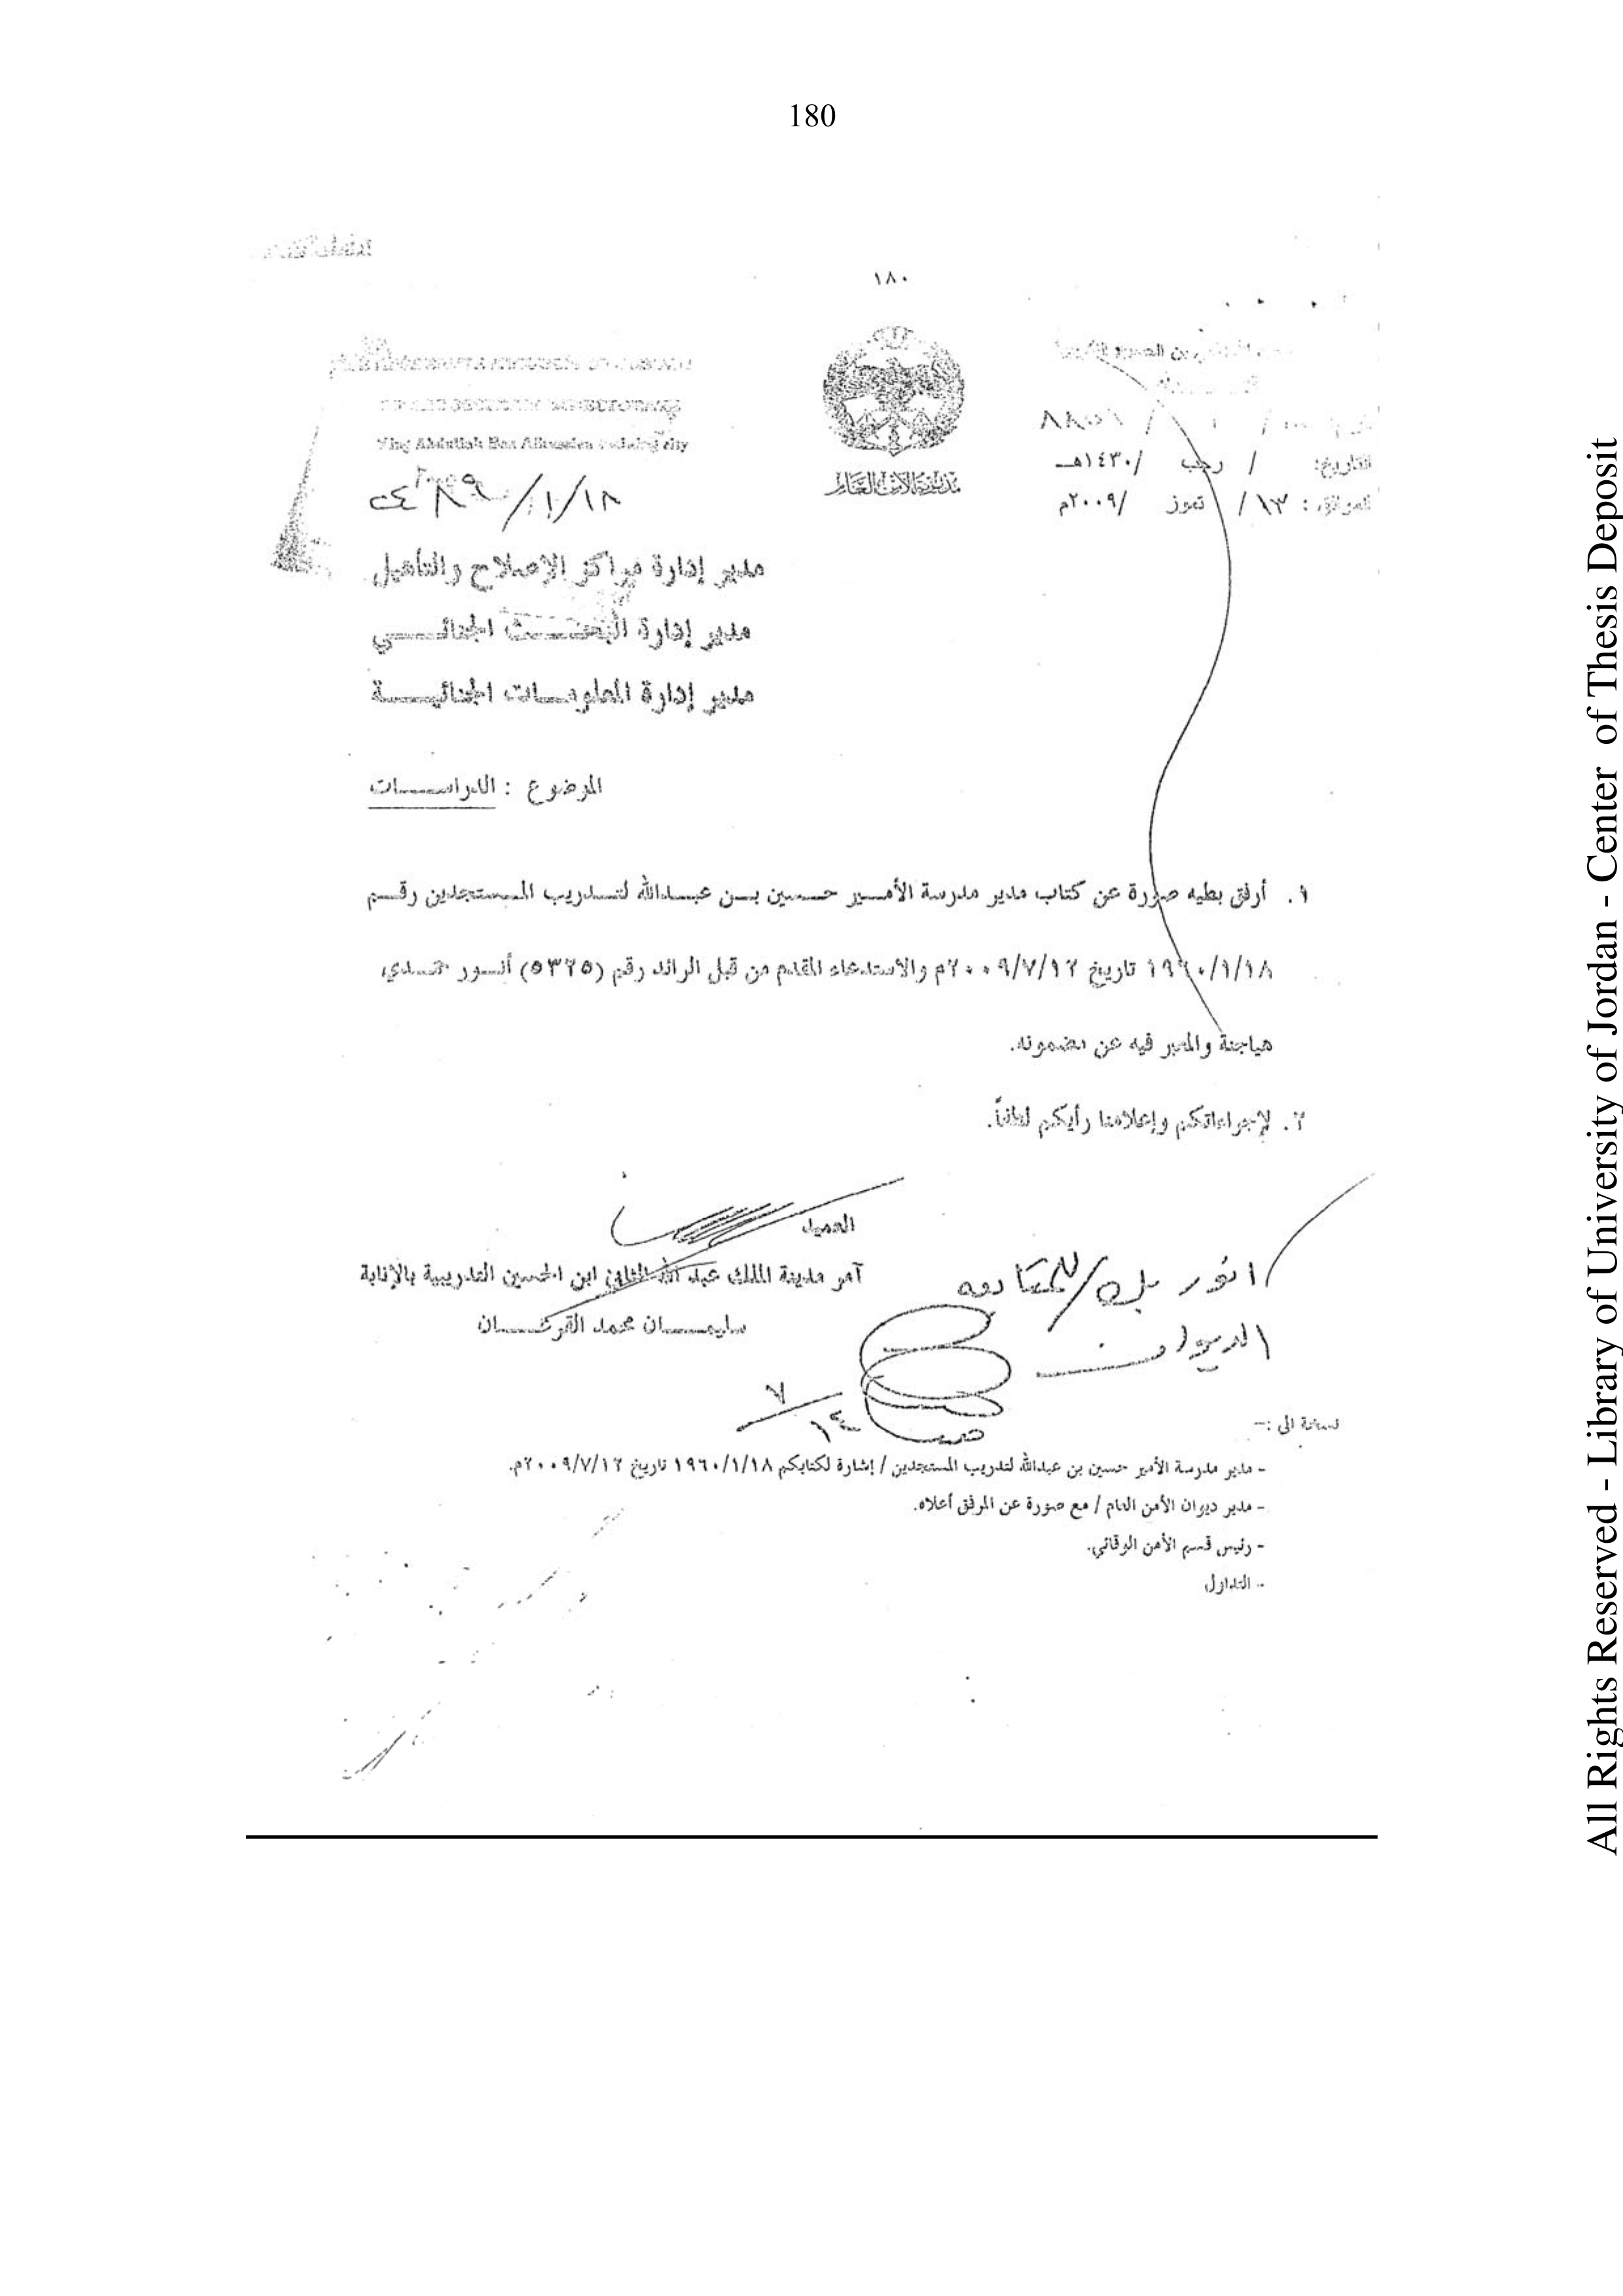 180
١٨٠
King Abdullah Ben Alhussien training city
التاريخ: / رجب /١٤٣٠هـ
الموافق: ١٣/ تموز /٢٠٠٩م
مديرية الأمن العام
مدير إدارة مراكز الإصلاح والتأهيل
مدير إدارة البحث الجنائي
مدير إدارة المعلومات الجنائية
الموضوع : الدراسات
١. أرفق بطيه صورة عن كتاب مدير مدرسة الأمير حسين بن عبدالله لتدريب المستجدين رقم
١٩٦٠/١/١٨ تاريخ ٢٠٠٩/٧/١٢م والاستدعاء المقدم من قبل الرائد رقم (٥٣٢٥) أنور حمدي
هياجنة والمعبر فيه عن مضمونه.
٢. لإجراءاتكم وإعلامنا رأيكم لطفاً.
العميد
آمر مدينة الملك عبد الله الثاني ابن الحسين التدريبية بالإنابة
سليمان محمد القرعان
انور بك/للمتابعه
الديوان
٧/١٤
نسخة الى :-
- مدير مدرسة الأمير حسين بن عبدالله لتدريب المستجدين / إشارة لكتابكم ١٩٦٠/١/١٨ تاريخ ٢٠٠٩/٧/١٢م.
- مدير ديوان الأمن العام / مع صورة عن المرفق أعلاه.
- رئيس قسم الأمن الوقائي.
- التداول
All Rights Reserved - Library of University of Jordan - Center of Thesis Deposit